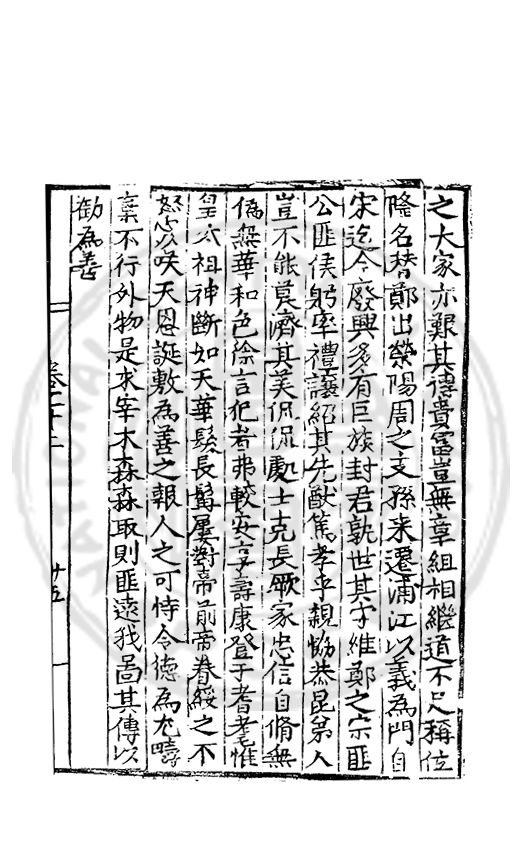 之大家亦艱其傳貴富豈無章組相繼道不足稱位
隆名替鄭出滎陽周之支孫来遷浦江以義為門自
宋迄今廢興多有巨族封君孰世其守維鄭之宗匪
公匪侯躬率禮讓紹其先猷篤孝乎親恊恭昆弟人
豈不能莫濟其美侃侃處士克長厥家忠信自脩無
偽無華和色徐言犯者弗較安享壽康登于耆耄惟
皇太祖神斷如天華髮長髯屢對帝前帝眷綏之不
怒以咲天恩誕敷為善之報人之可恃令德為尤疇
棄不行外物是求宰木森森取則匪遠我啚其傳以
勸為善
卷二十二
十五